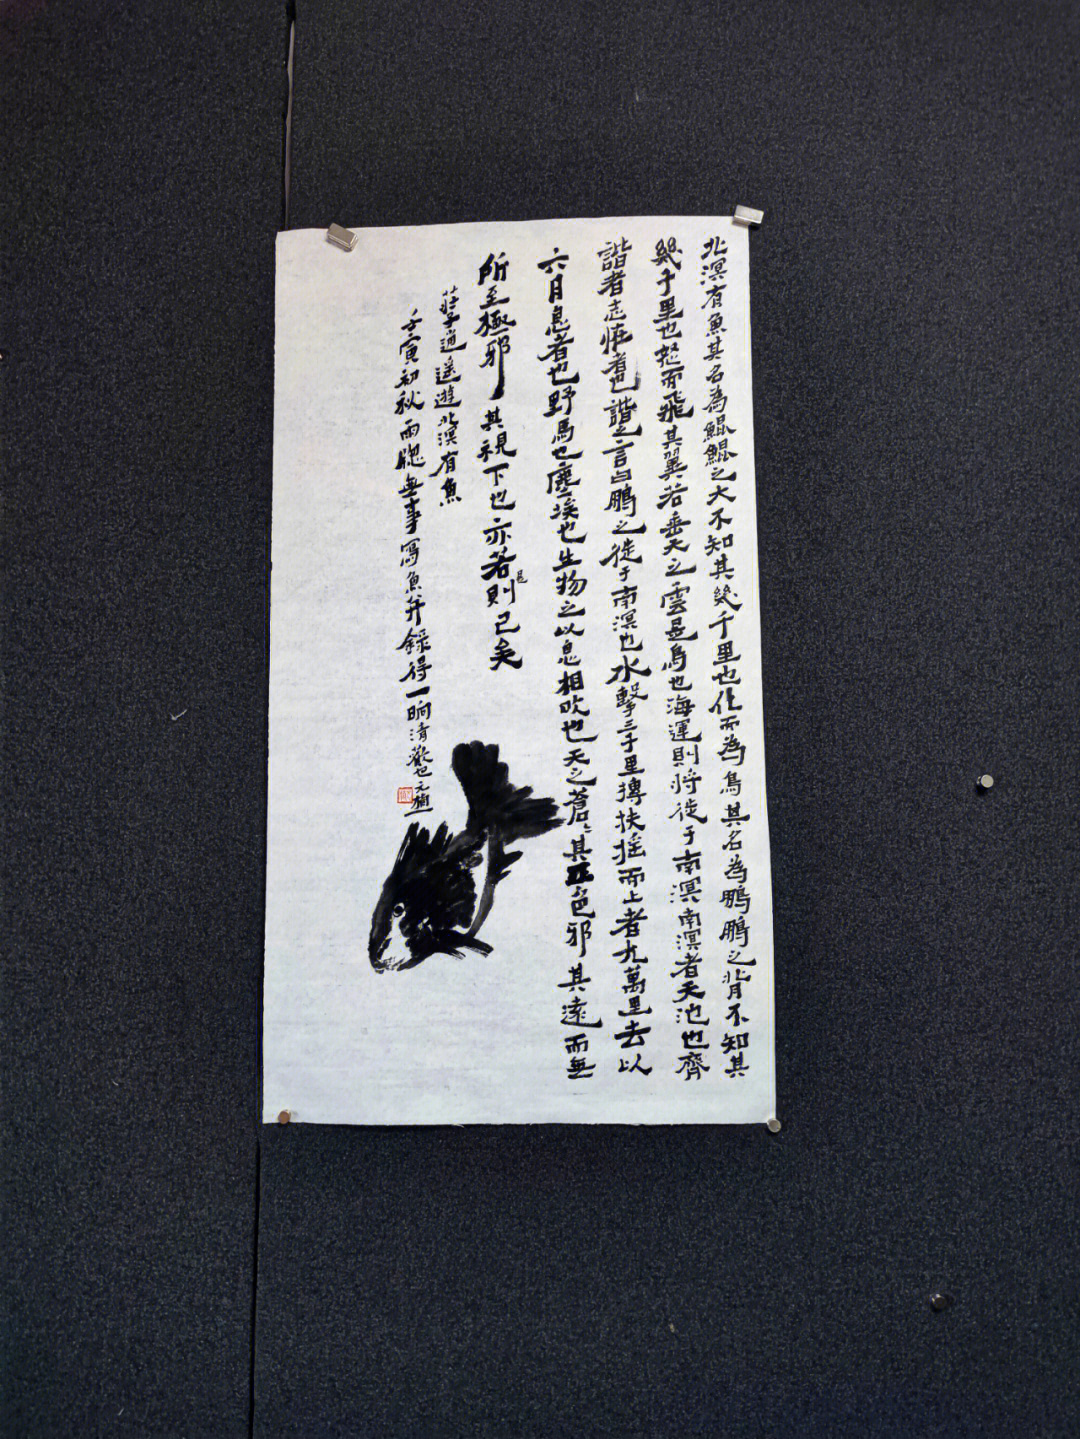 北溟有魚其名為鯤鯤之大不知其幾千里也化而為鳥其名為鵬鵬之背不知其
幾千里也怒而飛其翼若垂天之雲是鳥也海運則將徙于南溟南溟者天池也齊
諧者志怪者也諧之言曰鵬之徙于南溟也水擊三千里摶扶搖而上者九萬里去以
六月息者也野馬也塵埃也生物之以息相吹也天之蒼〻其正色邪其遠而無
所至極邪其視下也亦若是則已矣
莊子逍遙遊北溟有魚
壬寅初秋雨窗無事寫魚并錄得一晌清歡也元